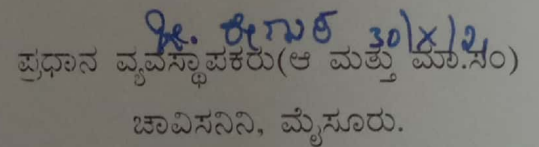 ಕೆ. ರೇಣುಕ 30/X/21
ಪ್ರಧಾನ ವ್ಯವಸ್ಥಾಪಕರು(ಆ ಮತ್ತು ಮಾ.ಸಂ)
ಚಾವಿಸನಿನಿ, ಮೈಸೂರು.